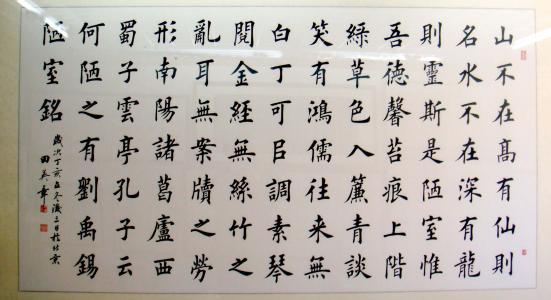 山不在高有仙則
名水不在深有龍
則靈斯是陋室惟
吾德馨苔痕上階
綠草色入簾青談
笑有鴻儒往来無
白丁可㠯調素琴
閱金經無絲竹之
亂耳無案牘之勞
形南陽諸葛廬西
蜀子雲亭孔子云
何陋之有劉禹錫
陋室銘
歲次丁亥孟冬日於北京
田英章